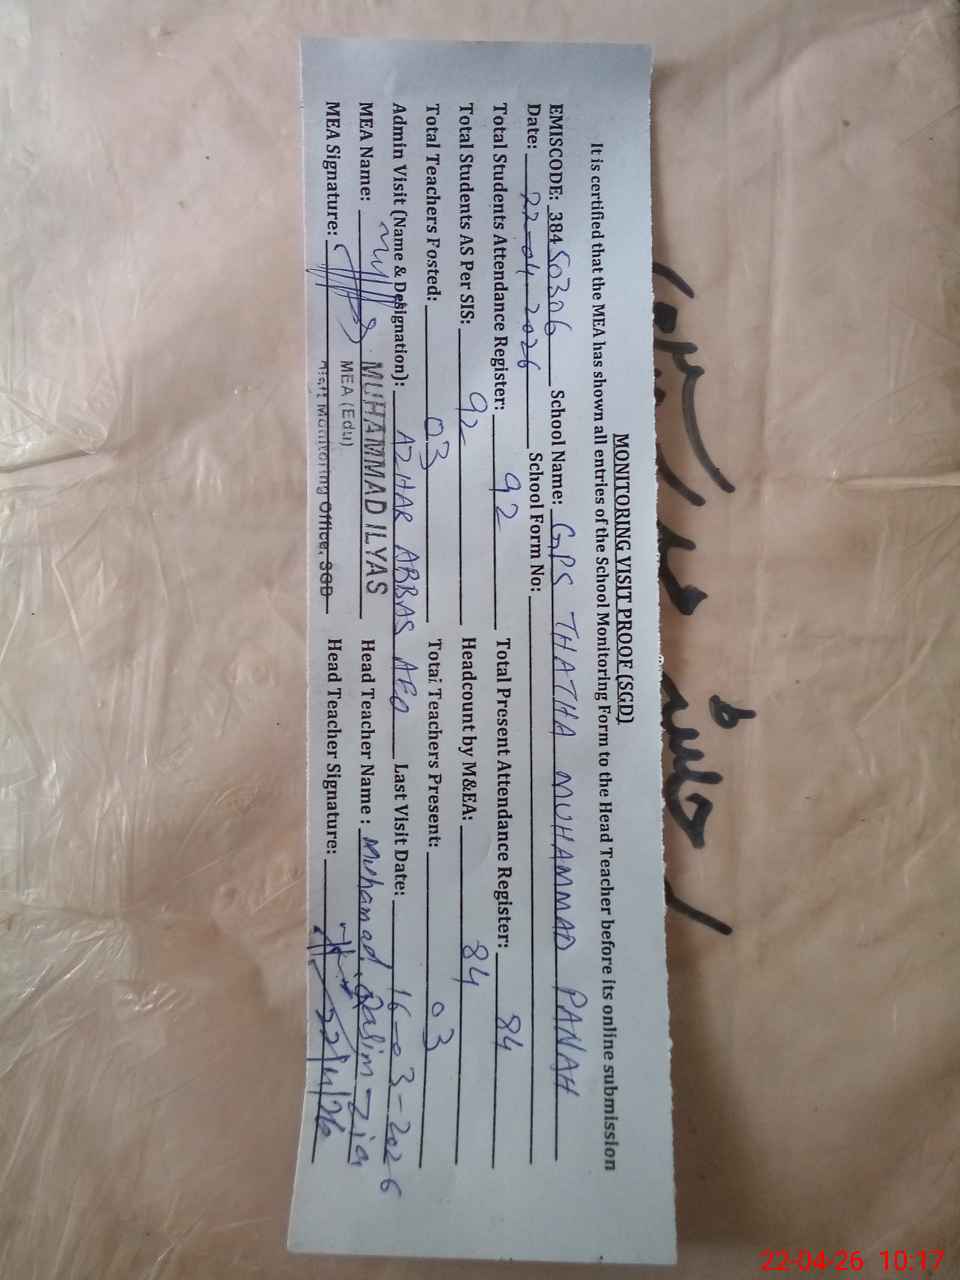 MONITORING VISIT PROOF (SGD)
It is certified that the MEA has shown all entries of the School Monitoring Form to the Head Teacher before its online submission
EMISCODE: 38450306 School Name: GPS THATHA MUHAMMAD PANAH
Date: 22-04-2026 School Form No:
Total Students Attendance Register: 92 Total Present Attendance Register: 84
Total Students AS Per SIS: 92 Headcount by M&EA: 84
Total Teachers Posted: 03 Total Teachers Present: 03
Admin Visit (Name & Designation): AZHAR ABBAS AEO Last Visit Date: 16-03-2026
MEA Name: MUHAMMAD ILYAS Head Teacher Name: Muhamad Qasim Zia
MEA (Edu)
MEA Signature: Monitoring Office, SGD Head Teacher Signature: 22/4/26
22-04-26 10:17